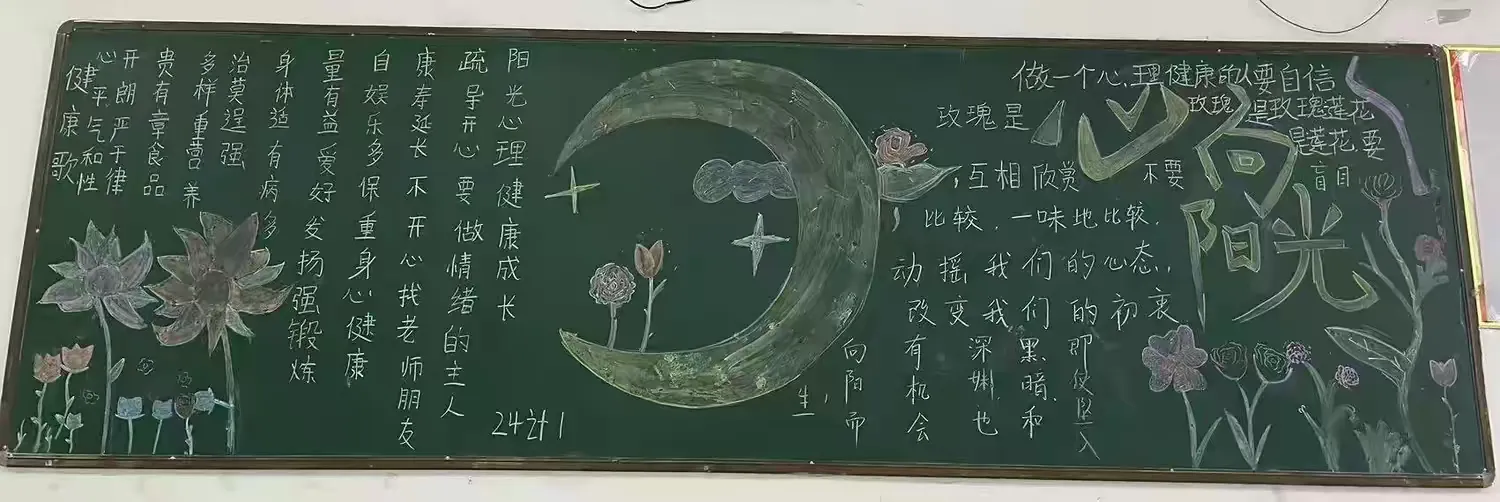 健康歌
心平气和性
开朗严于律
贵有章食品
多样重营养
治莫逞强
身体适有病多
量有益爱好发扬强锻炼
自娱乐多保重身心健康
康寿延长不开心找老师朋友
疏导开心要做情绪的主人
阳光心理健康成长
24计1
心向
阳光
做一个心理健康的人要自信
玫瑰是玫瑰是玫瑰莲花
是莲花,要
,互相欣赏不要盲目
比较,一味地比较,
动摇我们的心态,
改变我们的初衷
即使坠入
黑暗,和
深渊,也
有机会
向阳而
生,